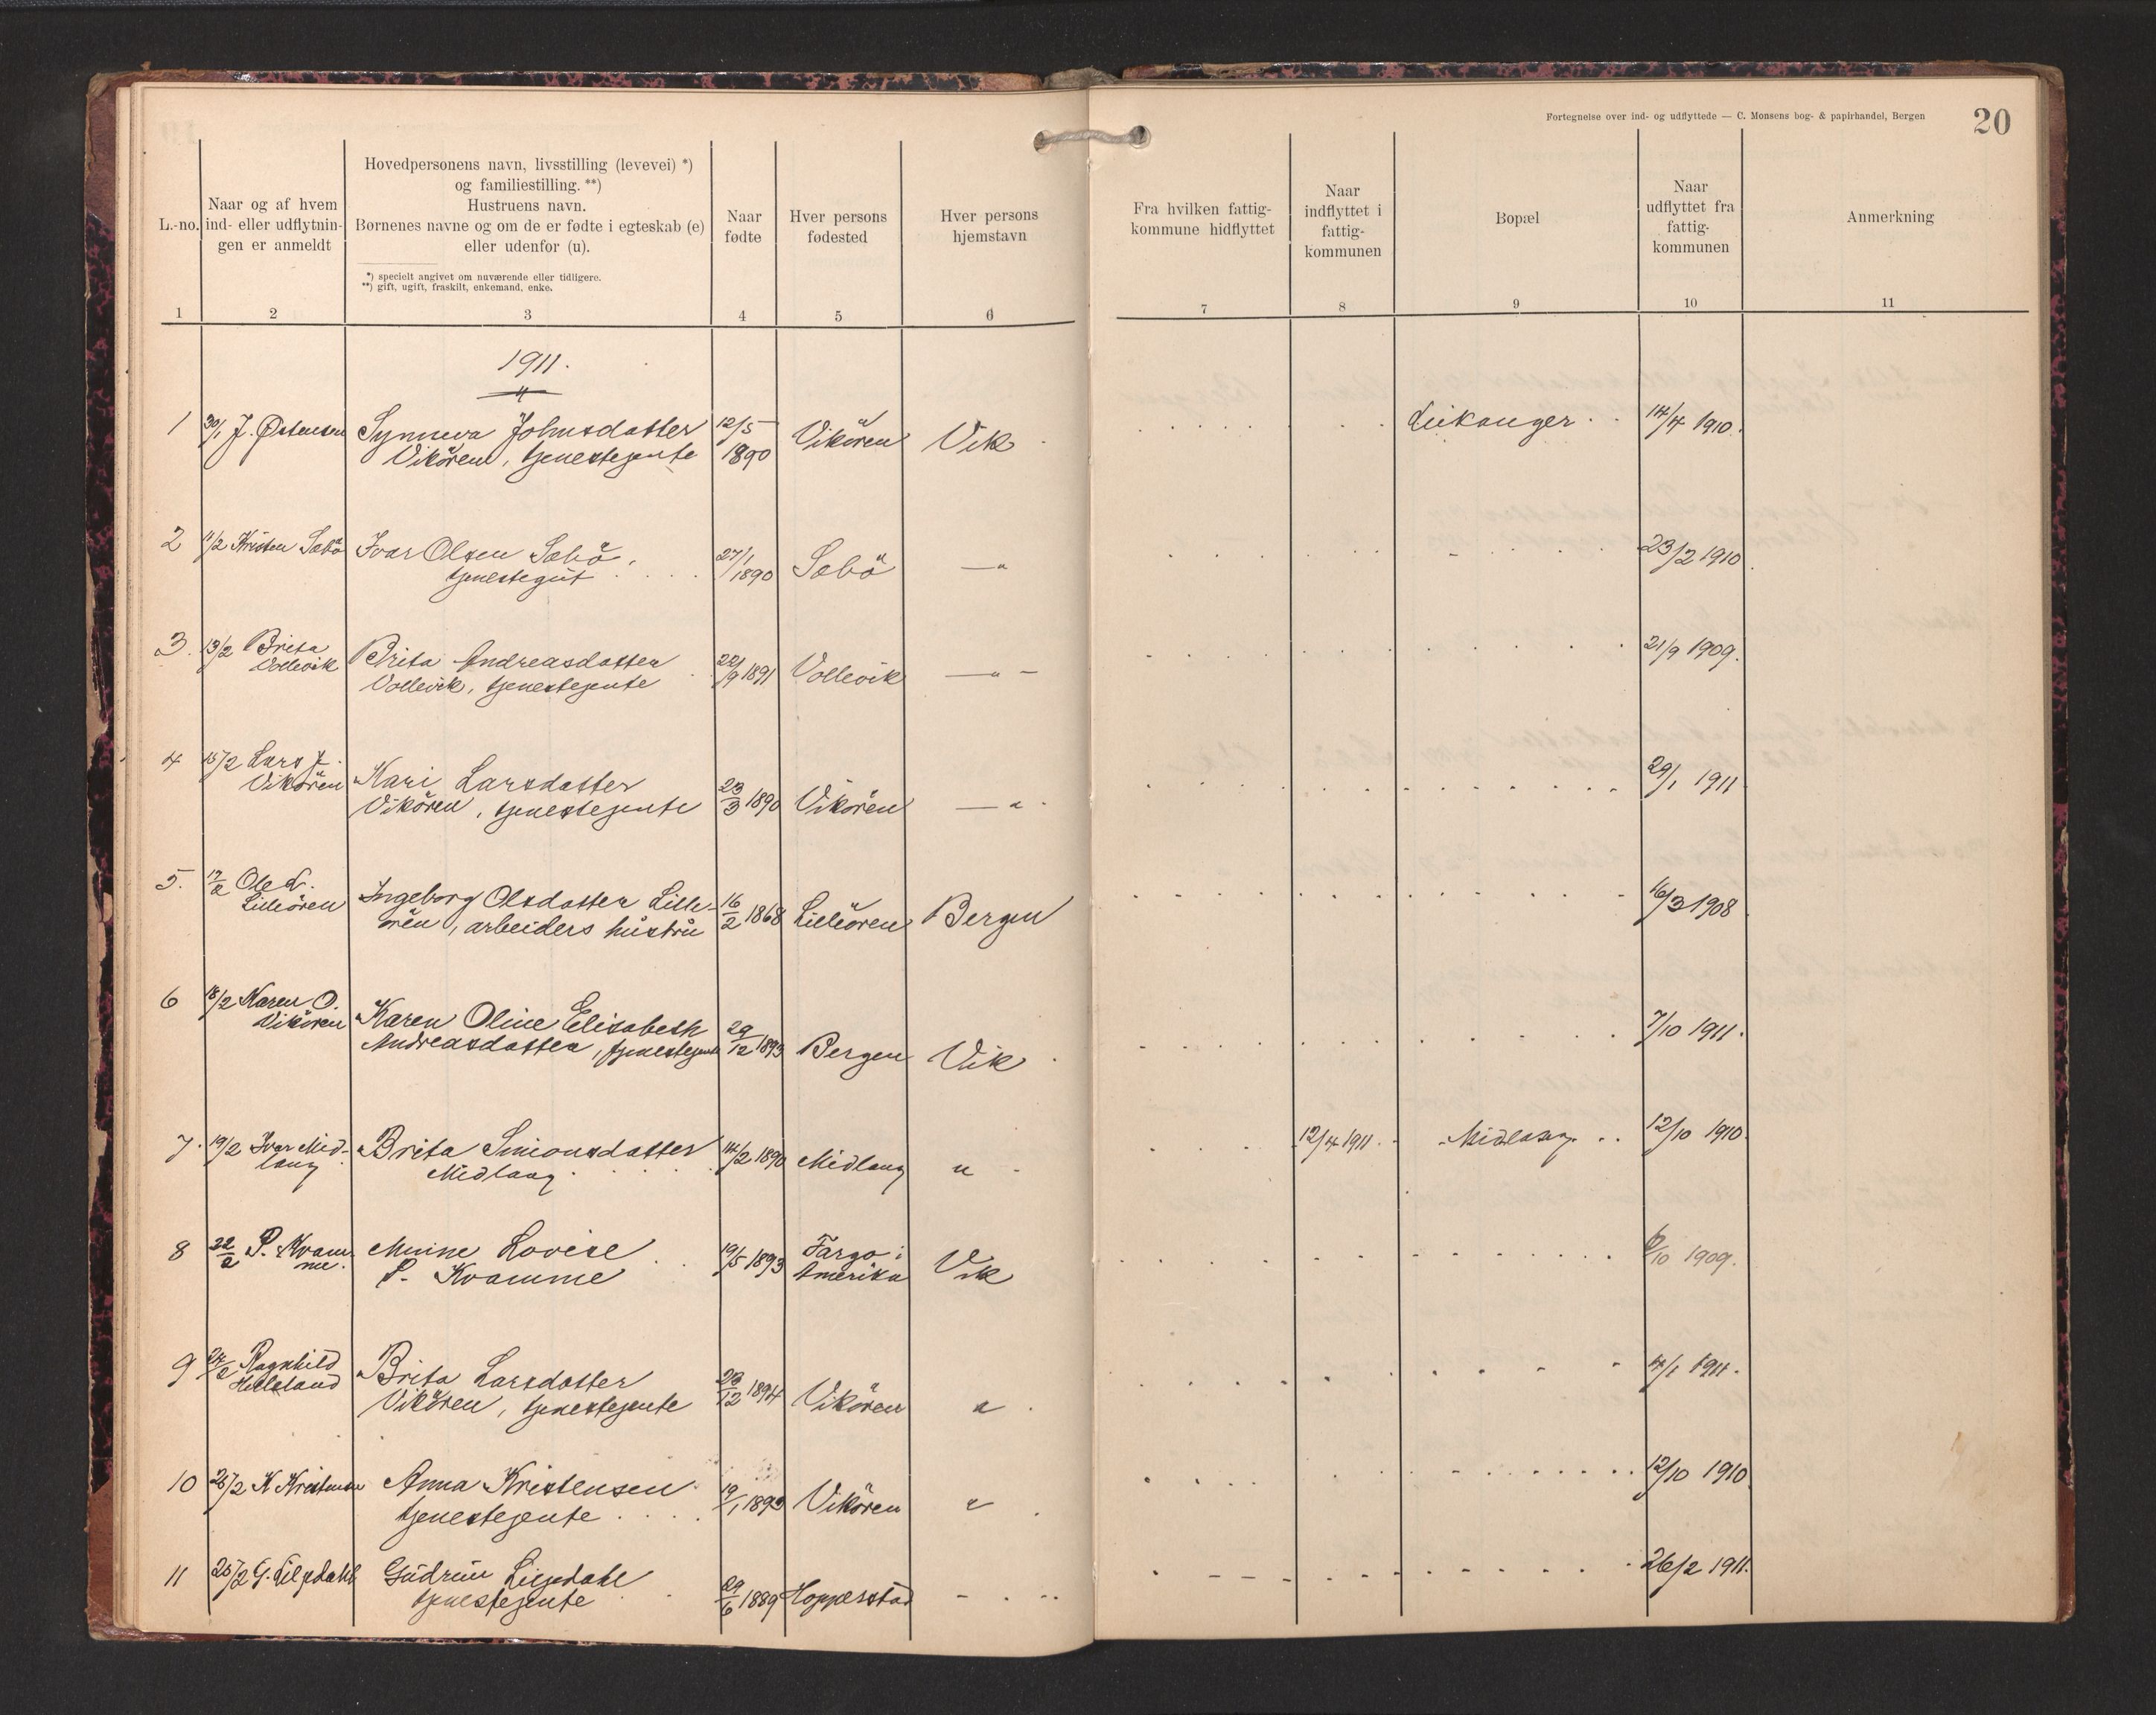 Fortegnelse over ind- og udflyttede — C. Monsens bog- & papirhandel, Bergen
20
L.-no.
Naar og af hvem
ind- eller udflytnin-
gen er anmeldt
Hovedpersonens navn, livsstilling (levevei) *)
og familiestilling. **)
Hustruens navn.
Børnenes navne og om de er fødte i egteskab (e)
eller udenfor (u).
*) specielt angivet om nuværende eller tidligere.
**) gift, ugift, fraskilt, enkemand, enke.
Naar
fødte
Hver persons
fødested
Hver persons
hjemstavn
Fra hvilken fattig-
kommune hidflyttet
Naar
indflyttet i
fattig-
kommunen
Bopæl
Naar
udflyttet fra
fattig-
kommunen
Anmerkning
1 2 3 4 5 6 7 8 9 10 11
1911.
1 30/1 J. Østensen Synneva Johnsdatter 12/5 Vikören Vik Leikanger 14/4 1910.
Vikören, tjenestegente 1890
2 11/2 Kristen Sæbö Ivar Olsen Sæbö, 27/1 Sæbö —"— 23/2 1910.
tjenestegut 1890
3. 13/2 Brita Brita Andreasdatter 22/9 1891 Vollevik —"— 21/9 1909.
Vollevik Vollevik, tjenestegente
4 15/2 Lars J. Kari Larsdatter 23/3 1890 Vikören —"— 29/1 1911
Vikören Vikören, tjenestegente
5. 17/2 Ole L. Ingeborg Olsdatter Lille- 16/2 1868 Lilleören Bergen 16/3 1908
Lilleören ören, arbeiders hustru
6 18/2 Karen O. Karen Oline Elisabeth 29/12 1893 Bergen Vik 7/10 1911.
Vikören Andreasdatter, tjenestegente
7. 19/2 Ivar Mid- Brita Simonsdatter 14/2 1890 Midlang " 12/4 1911. Midlang 12/10 1910.
lang Midlang
8 22/2 P. Kvam- Minne Lovise 19/5 1893 Fargo i Vik /10 1909.
me. P. Kvamme Amerika
9 24/2 Ragnhild Brita Larsdatter 23/12 1894 Vikören " 4/1 1911.
Helleland Vikören, tjenestegente
10 25/2 K Kristensen Anna Kristensen 19/1 1893 Vikören " 12/10 1910
tjenestegente
11 25/2 G. Liljedahl Gudrun Liljedahl 29/6 1889 Hopperstad 26/2 1911.
tjenestegente